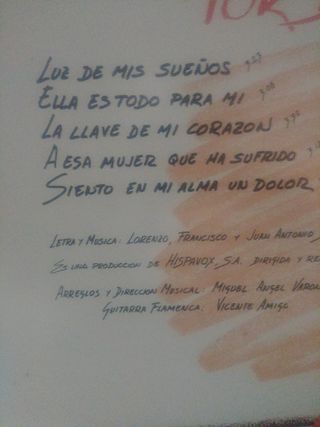 LUZ DE MIS SUEÑOS 3,23
ELLA ES TODO PARA MI
LA LLAVE DE MI CORAZON
A ESA MUJER QUE HA SUFRIDO
SIENTO EN MI ALMA UN DOLOR
LETRA Y MUSICA: LORENZO, FRANCISCO Y JUAN ANTONIO
ES UNA PRODUCCION DE HISPAVOX, S.A. DIRIGIDA Y RE
ARREGLOS Y DIRECCION MUSICAL: MIGUEL ANGEL VARON
GUITARRA FLAMENCA: VICENTE AMIGO